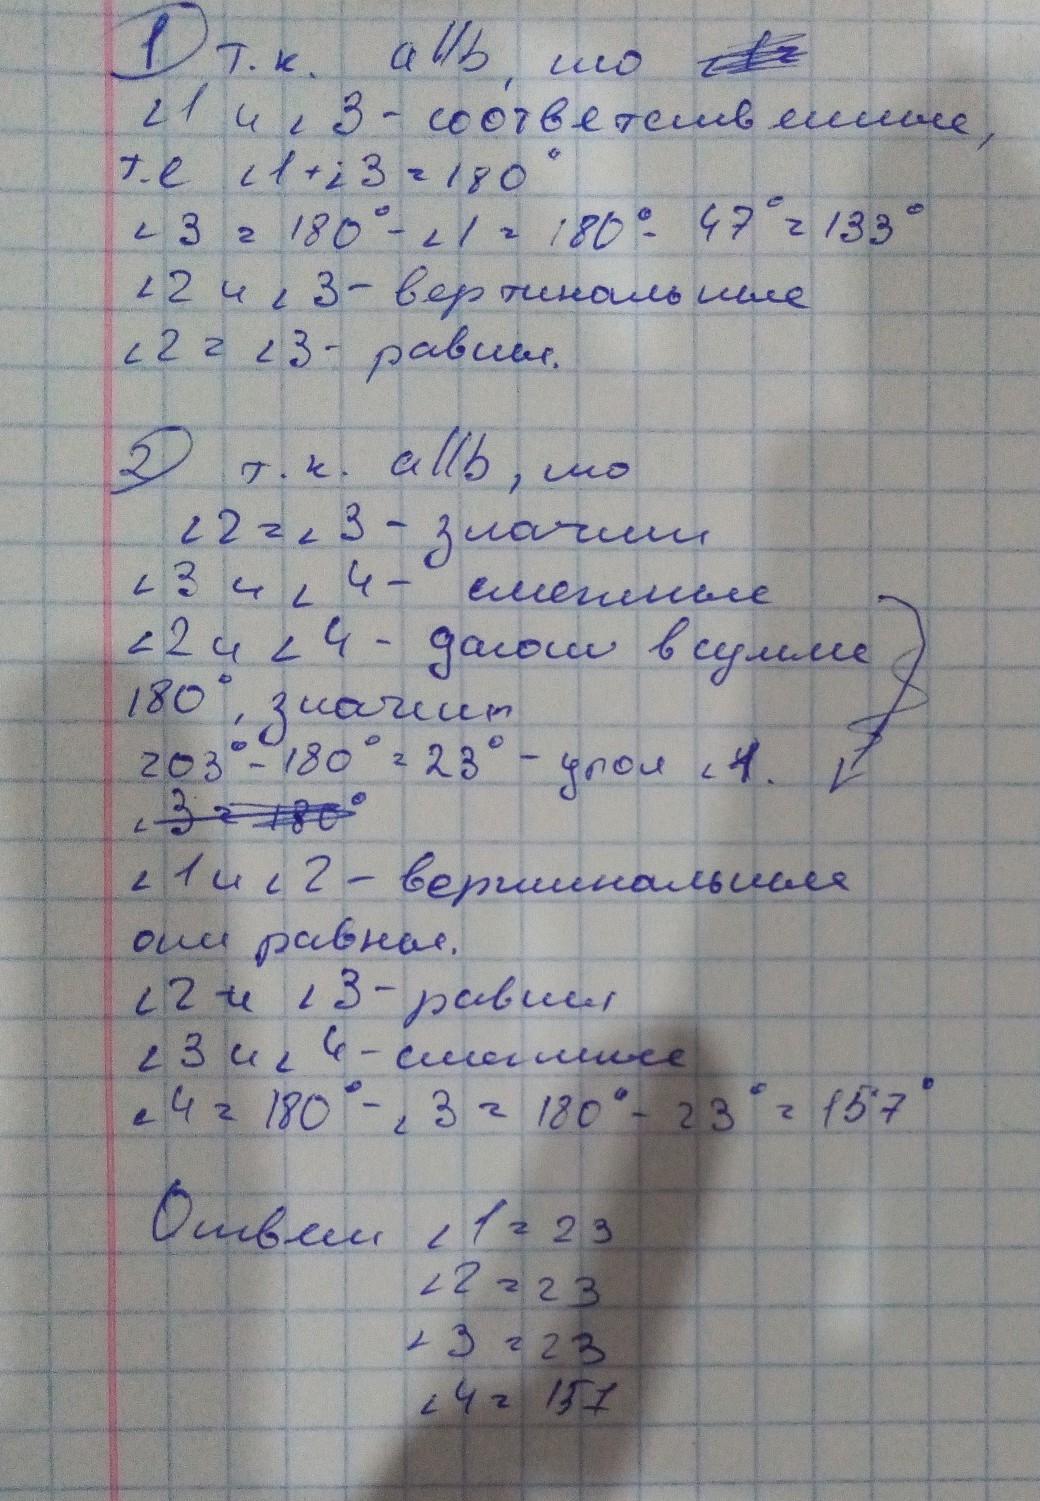 1 т.к. a||b, то
∠1 и ∠3 - соответственные,
т.е ∠1+∠3=180°
∠3 = 180° - ∠1 = 180° - 47° = 133°
∠2 и ∠3 - вертикальные
∠2 = ∠3 - равны.
2 т.к. a||b, то
∠2=∠3 - значит
∠3 и ∠4 - смежные
∠2 и ∠4 - дают в сумме
180°, значит
203° - 180° = 23° - угол ∠1.
∠3 = 180°
∠1 и ∠2 - вертикальные
они равны.
∠2 и ∠3 - равны
∠3 и ∠4 - смежные
∠4 = 180° - ∠3 = 180° - 23° = 157°
Ответ ∠1 = 23
∠2 = 23
∠3 = 23
∠4 = 157